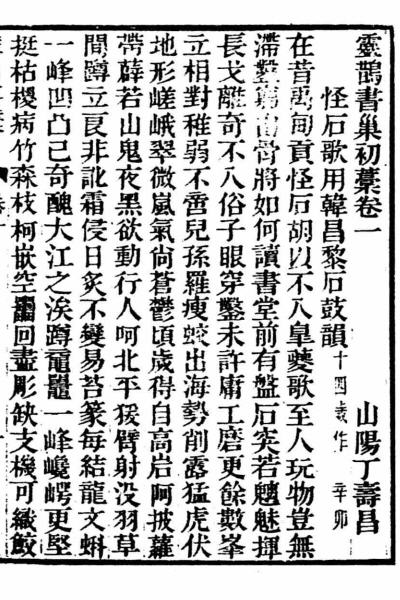 靈鵲書巢初藁卷一
山陽丁壽昌
怪石歌用韓昌黎石鼓韻十四歲作 辛卯
在昔禹甸貢怪石胡以不入皐夔歌至人玩物豈無
滯鑿窮骨將如何讀書堂前有盤石突若魑魅揮
長戈離奇不入俗子眼穿鑿未許庸工磨更餘數峯
立相對稚弱不啻兒孫羅瘦蛟出海勢削露猛虎伏
地形嵯峨翠微嵐氣尙蒼鬱頃歲得自高岩阿披蘿
帶薜若山鬼夜黑欲動行人呵北平猨臂射没羽草
間蹲立良非訛霜侵日炙不變易苔篆每結龍文蝌
一峰凹凸己奇醜大江之涘蹲黿鼉一峰巉崿更堅
挺枯椶病竹森枝柯嵌空回盡彫缺支機可織鮫